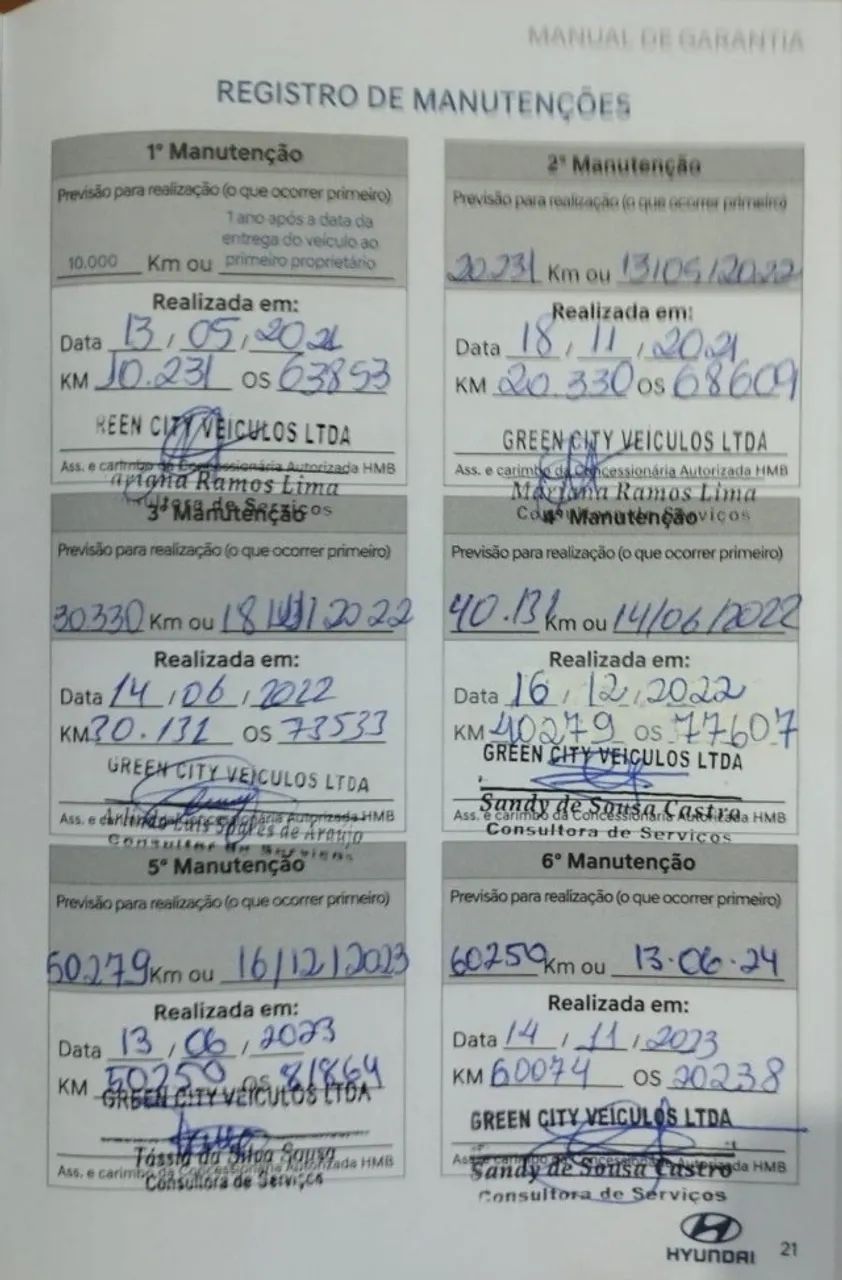 MANUAL DE GARANTIA
REGISTRO DE MANUTENÇÕES
1ª Manutenção
Previsão para realização (o que ocorrer primeiro)
1 ano após a data da
entrega do veículo ao
10.000 Km ou primeiro proprietário
Realizada em:
Data 13 / 05 / 2021
KM 10.231 OS 63853
REEN CITY VEICULOS LTDA
Ass. e carimbo da Concessionária Autorizada HMB
ariana Ramos Lima
sultora de Serviços
2ª Manutenção
Previsão para realização (o que ocorrer primeiro)
20231 Km ou 13/05/2022
Realizada em:
Data 18 / 11 / 2021
KM 20.330 OS 68609
GREEN CITY VEICULOS LTDA
Ass. e carimbo da Concessionária Autorizada HMB
Mariana Ramos Lima
Consultora de Serviços
3ª Manutenção
Previsão para realização (o que ocorrer primeiro)
30330 Km ou 18/11/2022
Realizada em:
Data 14 / 06 / 2022
KM 30.131 OS 73533
GREEN CITY VEICULOS LTDA
Ass. e carimbo da Concessionária Autorizada HMB
Arlindo Luis Soares de Araujo
Consultor de Serviços
4ª Manutenção
Previsão para realização (o que ocorrer primeiro)
40.131 Km ou 14/06/2022
Realizada em:
Data 16 / 12 / 2022
KM 40279 OS 77607
GREEN CITY VEICULOS LTDA
Sandy de Sousa Castro
Ass. e carimbo da Concessionária Autorizada HMB
Consultora de Serviços
5ª Manutenção
Previsão para realização (o que ocorrer primeiro)
50279 Km ou 16/12/2023
Realizada em:
Data 13 / 06 / 2023
KM 50250 OS 81864
GREEN CITY VEICULOS LTDA
Tássia da Silva Sousa
Ass. e carimbo da Concessionária Autorizada HMB
Consultora de Serviços
6ª Manutenção
Previsão para realização (o que ocorrer primeiro)
60250 Km ou 13.06.24
Realizada em:
Data 14 / 11 / 2023
KM 60074 OS 20238
GREEN CITY VEICULOS LTDA
Ass. e carimbo da Concessionária Autorizada HMB
Sandy de Sousa Castro
Consultora de Serviços
HYUNDAI
21